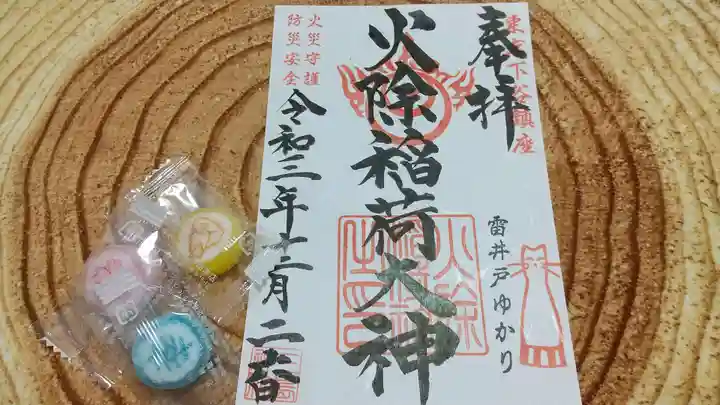 東京下谷鎮座
奉拝
雷井戸ゆかり
火除稲荷大神
火災守護
防災安全
令和三年十二月二日